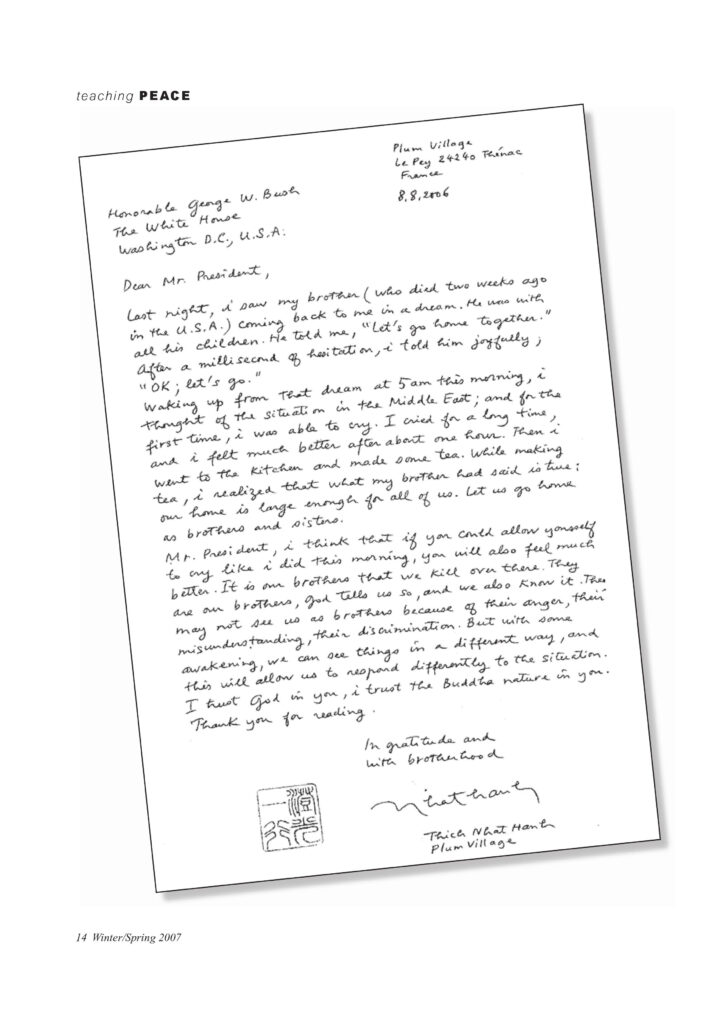 teaching PEACE
Plum Village
Le Pey 24240 Thénac
France
8.8.2006
Honorable George W. Bush
The White House
Washington D.C., U.S.A.
Dear Mr. President,
Last night, i saw my brother (who died two weeks ago
in the U.S.A.) coming back to me in a dream. He was with
all his children. He told me, "Let's go home together."
After a millisecond of hesitation, i told him joyfully ;
"OK ; let's go."
Waking up from that dream at 5 am this morning, i
thought of the situation in the Middle East ; and for the
first time, i was able to cry. I cried for a long time,
and i felt much better after about one hour. Then i
went to the kitchen and made some tea. While making
tea, i realized that what my brother had said is true :
our home is large enough for all of us. Let us go home
as brothers and sisters.
Mr. President, i think that if you could allow yourself
to cry like i did this morning, you will also feel much
better. It is our brothers that we kill over there. They
are our brothers, God tells us so, and we also know it. They
may not see us as brothers because of their anger, their
misunderstanding, their discrimination. But with some
awakening, we can see things in a different way, and
this will allow us to respond differently to the situation.
I trust God in you, i trust the Buddha nature in you.
Thank you for reading.
In gratitude and
with brotherhood
Nhat Hanh
Thich Nhat Hanh
Plum Village
14 Winter/Spring 2007